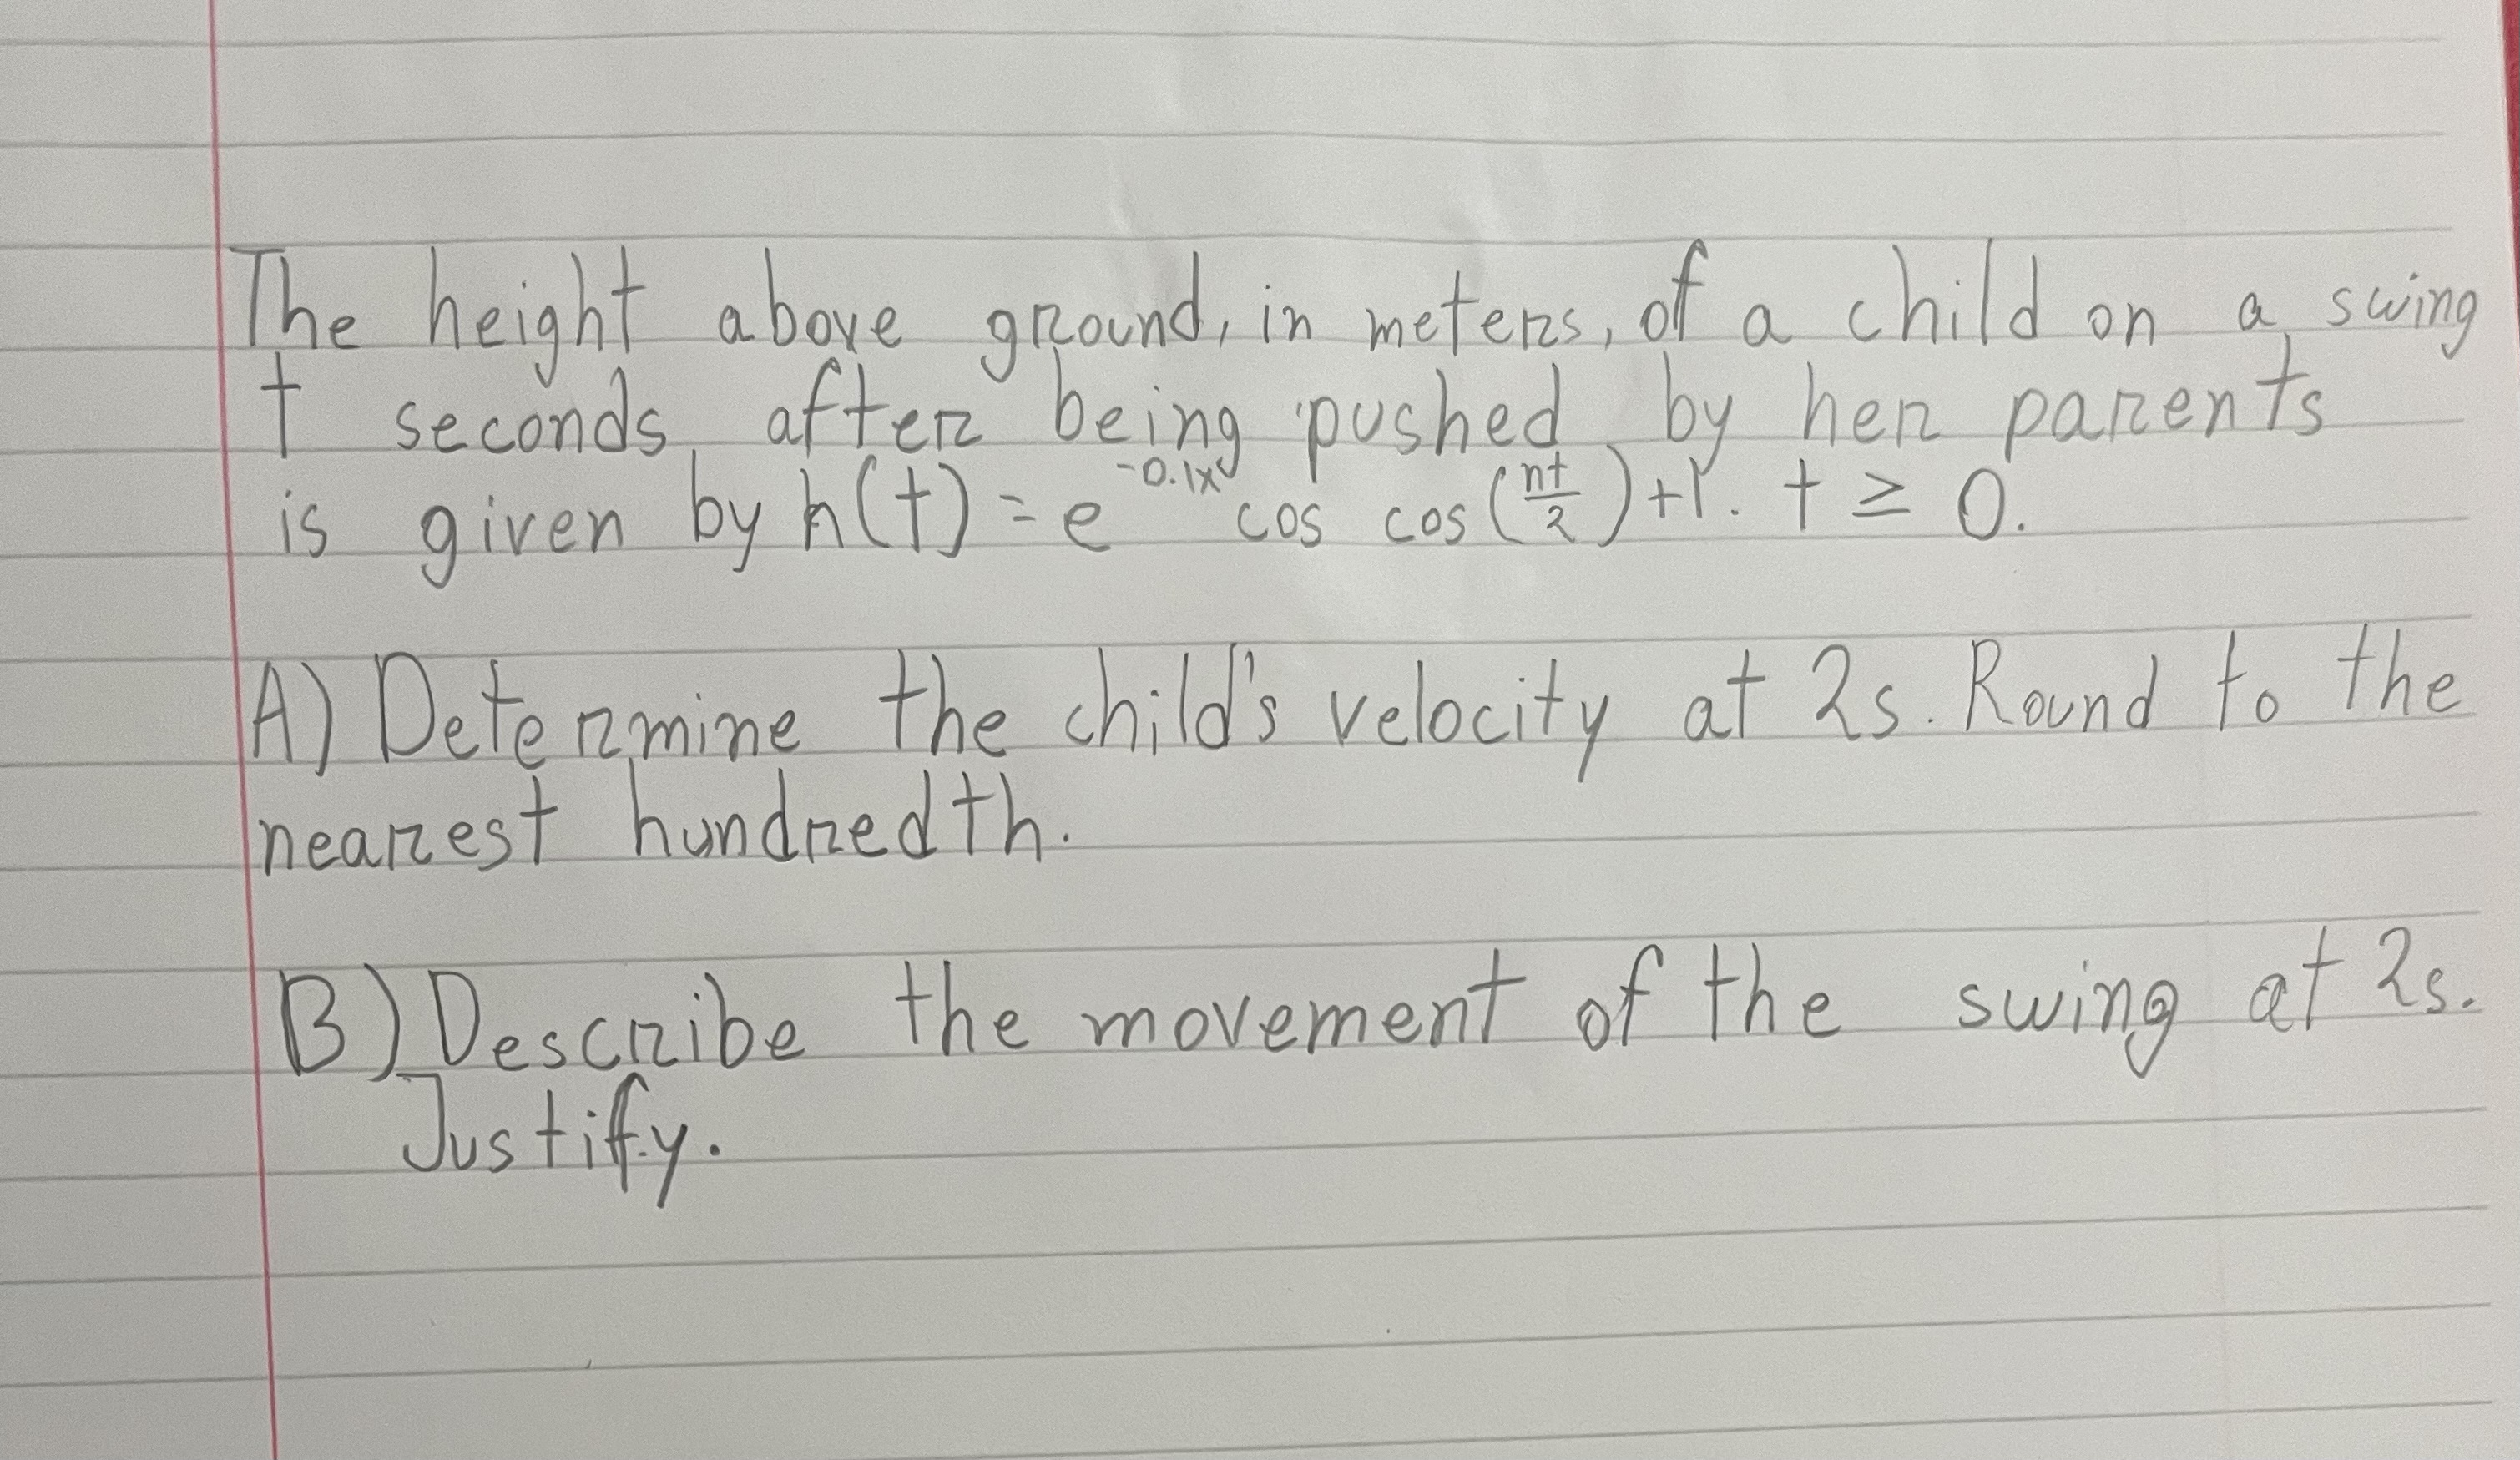 The height above ground, in meters, of a child on a swing
t seconds after being pushed by her parents
is given by h(t) = e^{-0.1x} cos cos(\frac{nt}{2})+1. t ≥ 0.
A) Determine the child's velocity at 2s. Round to the
nearest hundredth.
B) Describe the movement of the swing at 2s.
Justify.